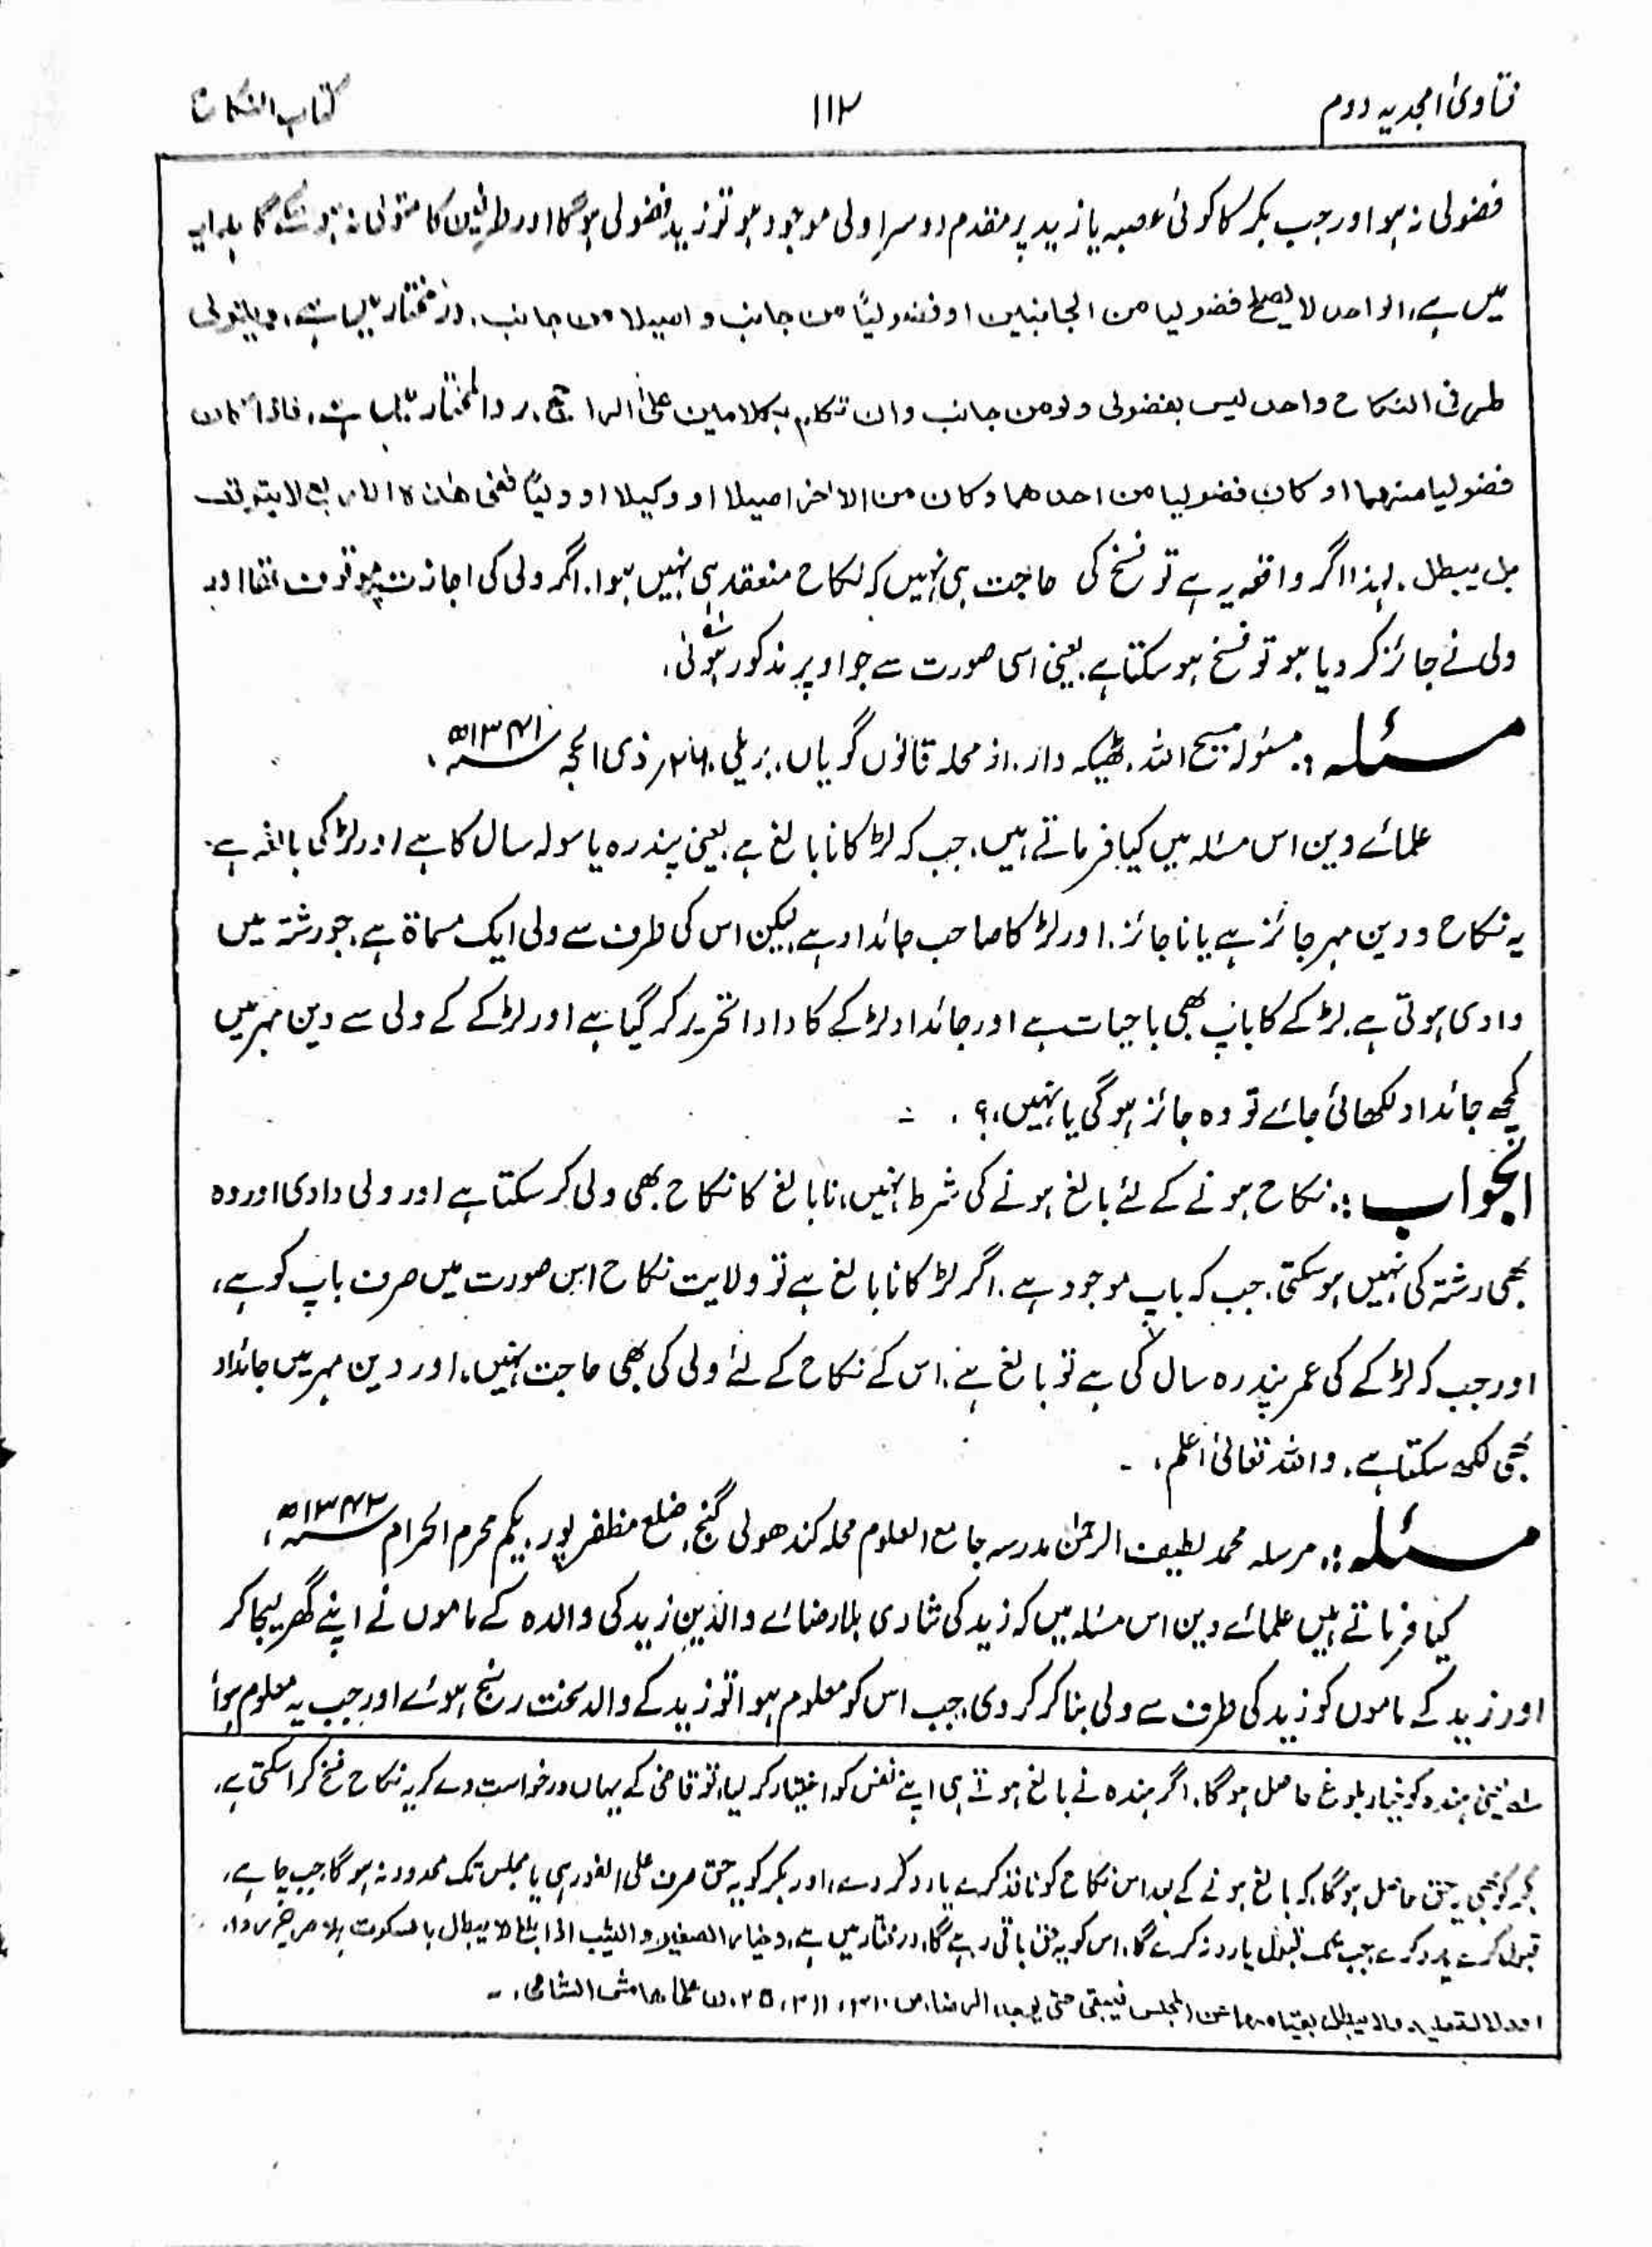 فتاویٰ امجدیہ دوم ۱۱۲ کتاب النکاح
فضولی نہ ہو اور جب بکر کا کوئی عصبہ یا زید پر مقدم دوسرا ولی موجود ہو تو زید فضولی ہوگا اور طرفین کا متولی نہ ہو سکے گا ہدایہ
میں ہے، الواحد لا یصلح فضولیا من الجانبین او فضولیًا من جانب و اصیلا من جانب، درمختار میں ہے، ویتولی
طرفی النکاح واحد لیس بفضولی ولو من جانب وان تکلم بکلامین علی الراجح، ردالمحتار میں ہے، فاذا کان
فضولیا منہما او کان فضولیا من احدھما وکان من الاٰخر اصیلا او وکیلا او ولیًا ففی ھٰذہ الاربع لا یتوقف
بل یبطل، لہٰذا اگر واقعہ یہ ہے تو فسخ کی حاجت ہی نہیں کہ نکاح منعقد ہی نہیں ہوا، اگر ولی کی اجازت پر موقوف تھا اور
ولی نے جائز کر دیا ہو تو فسخ ہو سکتا ہے، یعنی اسی صورت سے جو اوپر مذکور ہوئی،
مسئلہ:۔ مسئولہ مسیح اللہ، ٹھیکہ دار، از محلہ قانون گویاں، بریلی، ۲۴؍ ذی الحجہ ۱۳۴۱ھ،
علمائے دین اس مسئلہ میں کیا فرماتے ہیں، جب کہ لڑکا نابالغ ہے یعنی پندرہ یا سولہ سال کا ہے اور لڑکی بالغہ ہے،
یہ نکاح و دین مہر جائز ہے یا ناجائز، اور لڑکا صاحب جائداد ہے لیکن اس کی طرف سے ولی ایک مسماۃ ہے، جو رشتہ میں
دادی ہوتی ہے، لڑکے کا باپ بھی باحیات ہے اور جائداد لڑکے کا دادا تحریر کر گیا ہے اور لڑکے کے ولی سے دین مہر میں
کچھ جائداد لکھائی جائے تو وہ جائز ہوگی یا نہیں،؟ ۔
الجواب:۔ نکاح ہونے کے لئے بالغ ہونے کی شرط نہیں، نابالغ کا نکاح بھی ولی کر سکتا ہے اور ولی دادی اور وہ
بھی رشتہ کی نہیں ہو سکتی، جب کہ باپ موجود ہے، اگر لڑکا نابالغ ہے تو ولایت نکاح اس صورت میں صرف باپ کو ہے،
اور جب کہ لڑکے کی عمر پندرہ سال کی ہے تو بالغ ہے، اس کے نکاح کے لئے ولی کی بھی حاجت نہیں، اور دین مہر میں جائداد
بھی لکھ سکتا ہے، واللہ تعالیٰ اعلم، ۔
مسئلہ:۔ مرسلہ محمد لطیف الرحمٰن مدرسہ جامع العلوم محلہ کندھولی گنج، ضلع مظفر پور، یکم محرم الحرام ۱۳۴۲ھ،
کیا فرماتے ہیں علمائے دین اس مسئلہ میں کہ زید کی شادی بلا رضائے والدین زید کی والدہ کے ماموں نے اپنے گھر لیجا کر
اور زید کے ماموں کو زید کی طرف سے ولی بنا کر کر دی، جب اس کو معلوم ہوا تو زید کے والد سخت رنج ہوئے اور جب یہ معلوم ہوا
لہ یعنی ہندہ کو خیار بلوغ حاصل ہوگا، اگر ہندہ نے بالغ ہوتے ہی اپنے نفس کو اختیار کر لیا، تو قاضی کے یہاں درخواست دے کر یہ نکاح فسخ کرا سکتی ہے،
بکر کو بھی یہ حق حاصل ہوگا، کہ بالغ ہونے کے بعد اس نکاح کو نافذ کرے یا رد کر دے، اور بکر کو یہ حق صرف علی الفور ہی یا مجلس تک محدود نہ ہوگا، جب چاہے،
قبول کرے یا رد کرے، جب تک قبول یا رد نہ کرے گا، اس کو یہ حق باقی رہے گا، درمختار میں ہے، وخیار الصغیر والثیب اذا بلغا لا یبطل بالسکوت بلا صریح رضا،
او دلالۃ علیہ، ولا یبطل بقیامھما عن المجلس فیبقی حتی یوجد الرضا، ص ۳۱۰، ۳۱۱، ج ۲، علی ھامش الشامی، ۔